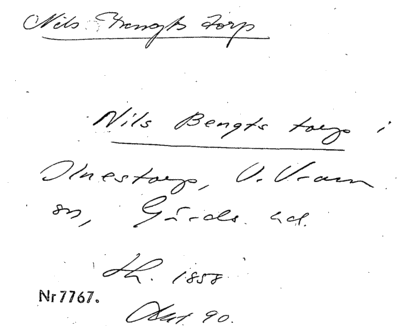 Nils Bengts torp
Nils Bengts torp i
Olnestorp, V. Vram
sn, Gärds hd.
Jh. 1858
Nr 7767.
Akt 90.